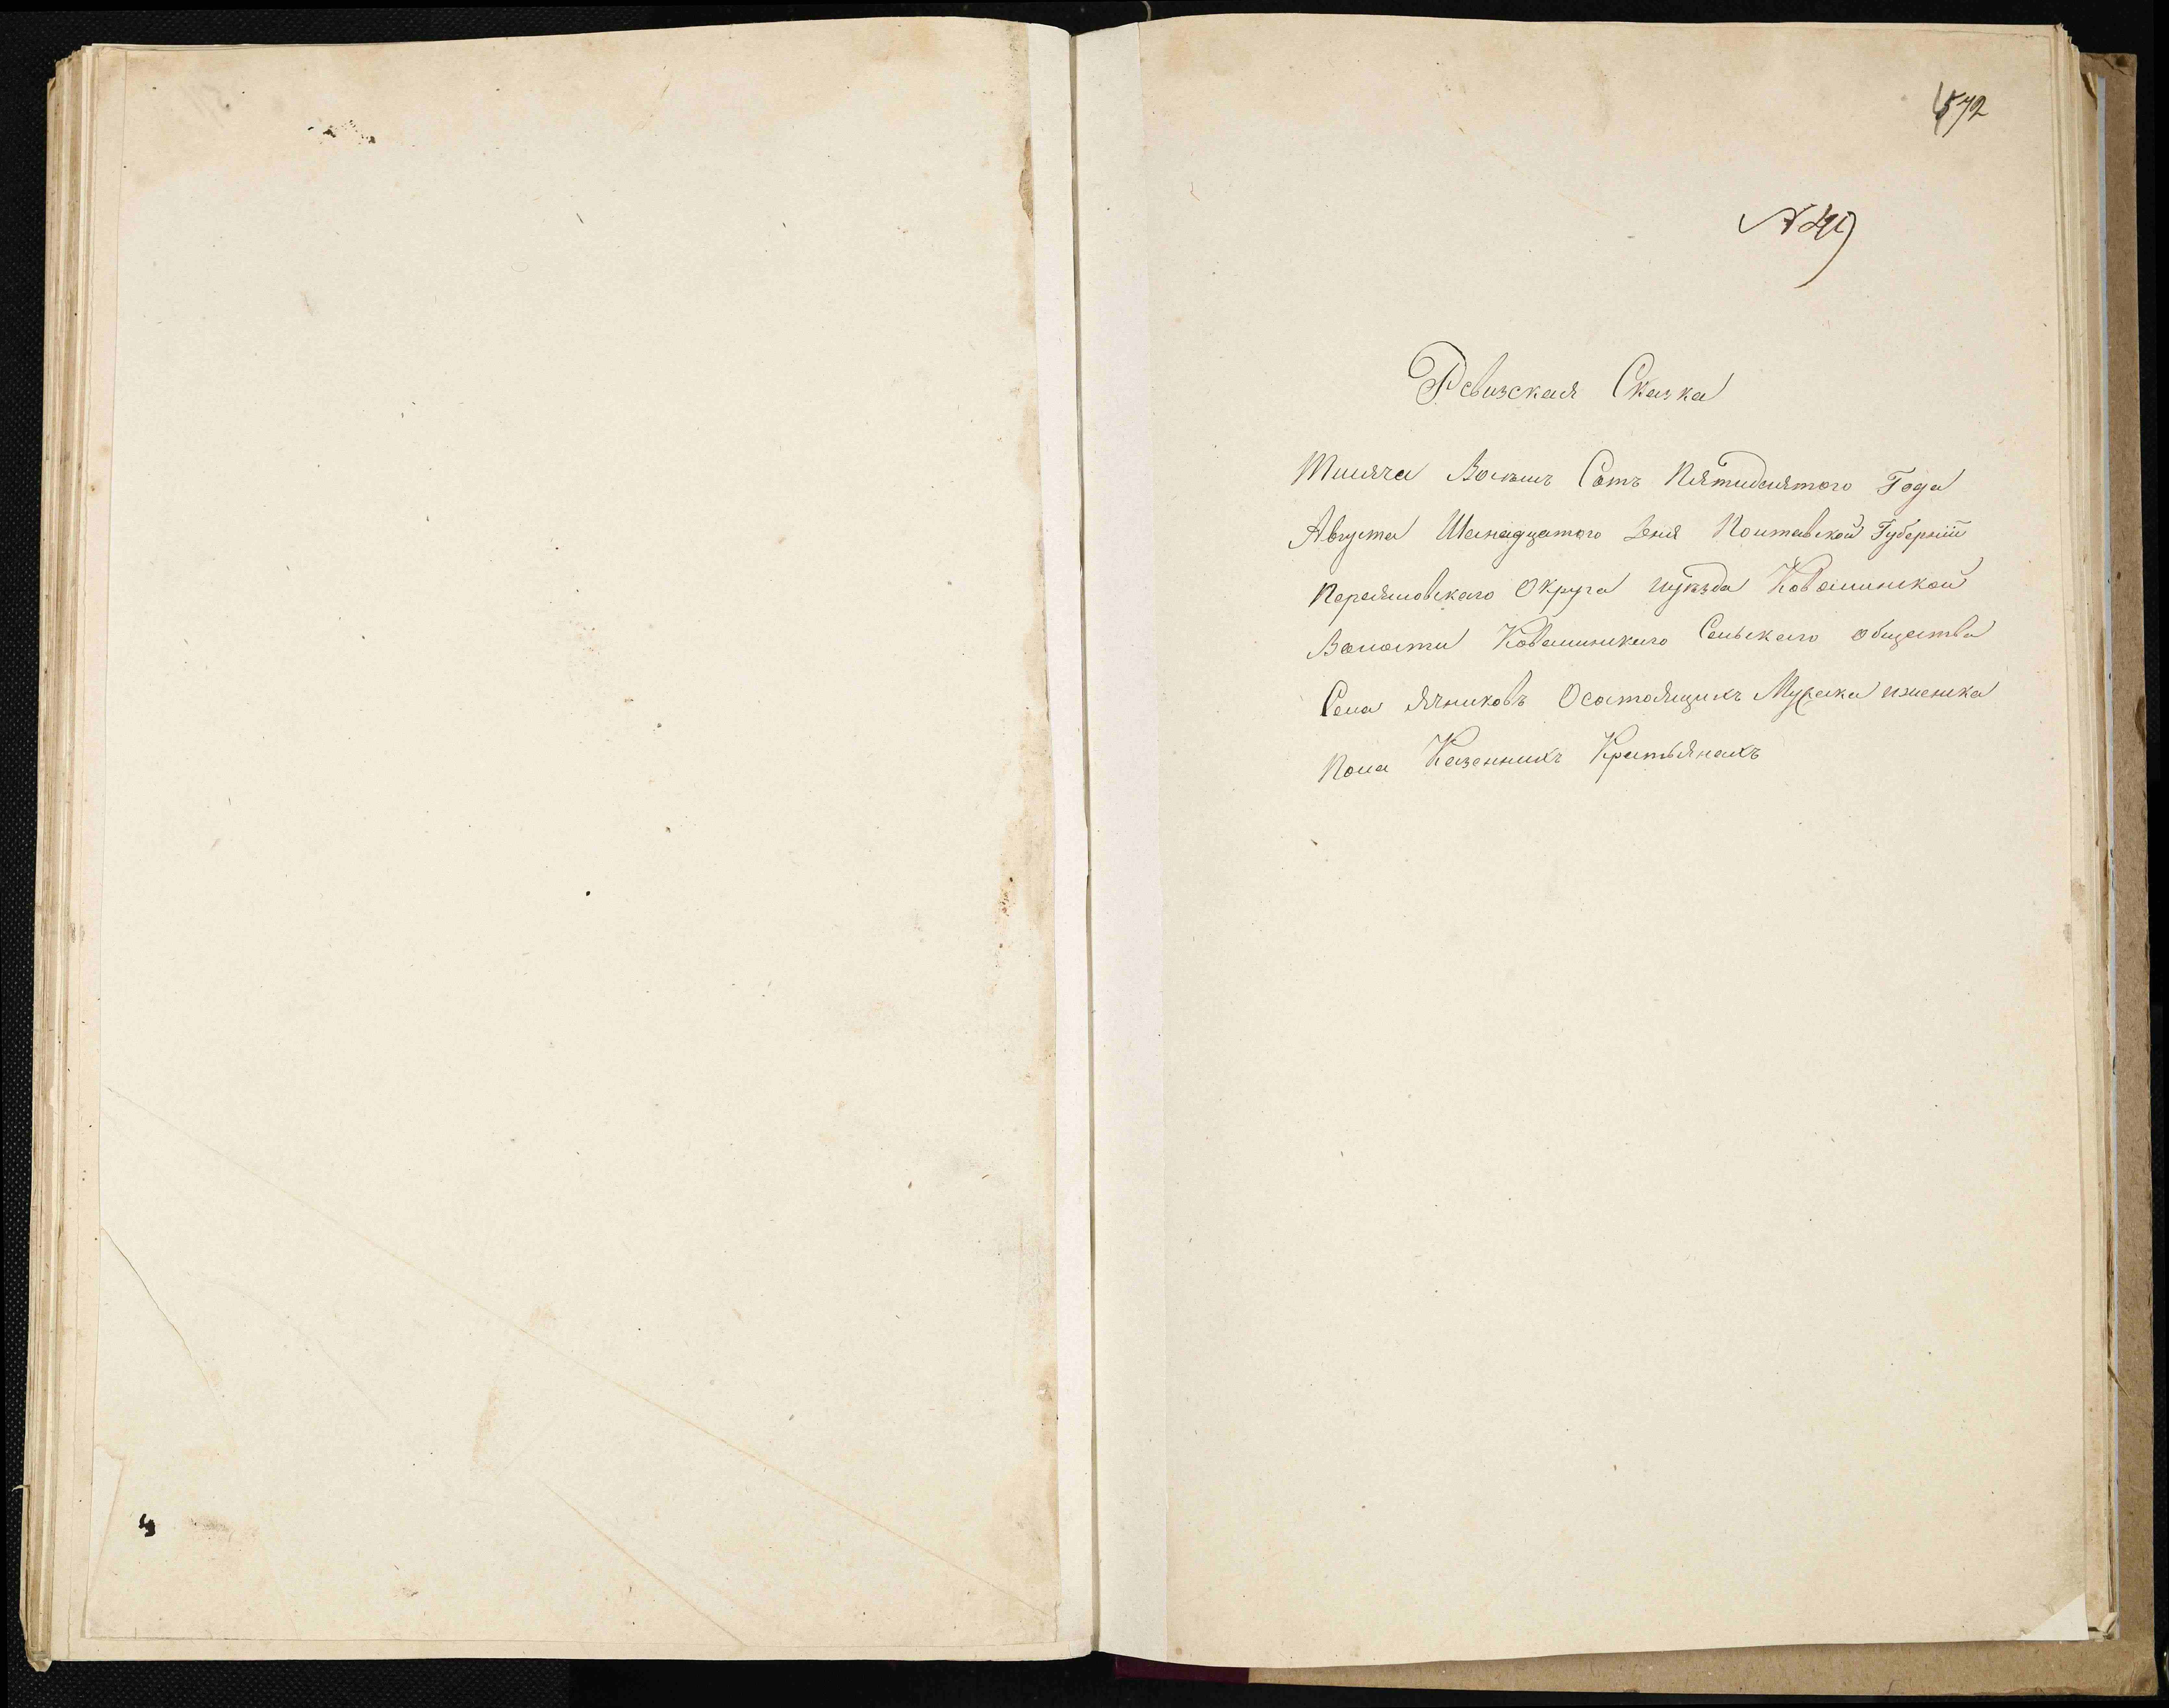 572
№ 49
Ревизская Сказка
Тисяча Восемь Сотъ Пятидесятого Года
Августа Шеснадцатого Дня Полтавской Губерніи
Переяловского Округа иуезда Ковалинской
Волости Ковалинского Сельского общества
Села Ячниковъ Осостоящихъ Мужска иженска
Пола Казеннихъ Крестьянахъ